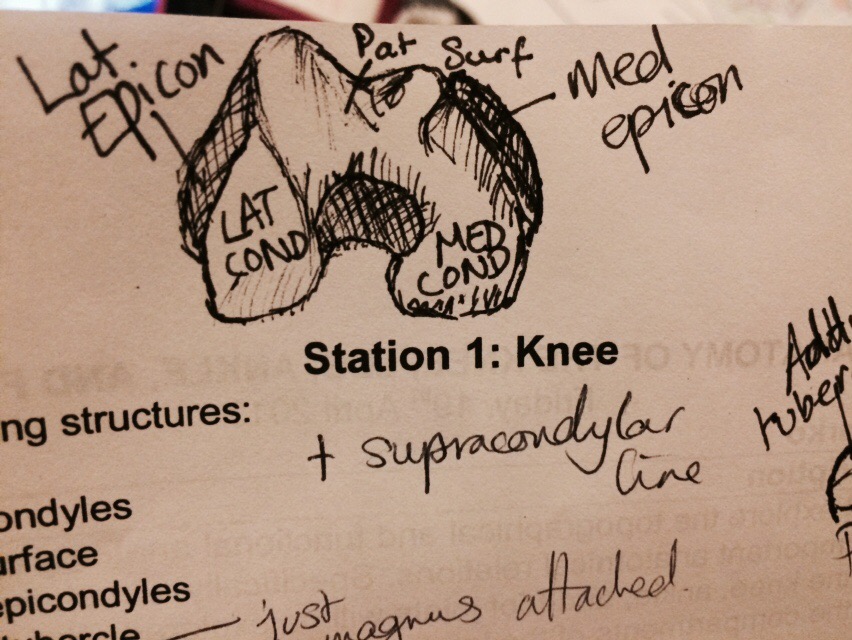 Lat.
Epicon
Pat Surf
Med
epicon
LAT
COND
MED
COND
Station 1: Knee
ng structures:
+ supracondylar
line
Add
tuber
ondyles
urface
epicondyles
just
magnus attached.